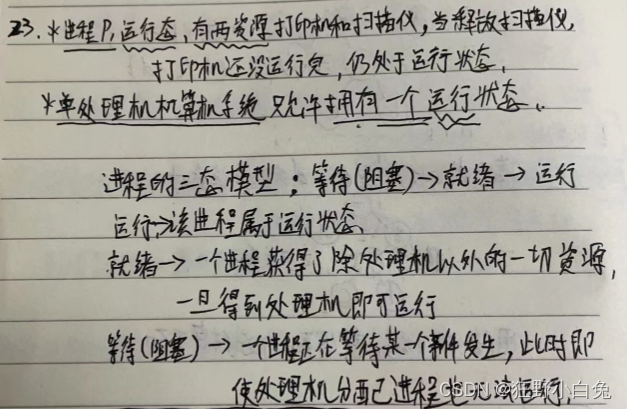 23. *进程P,运行态,有两资源打印机和扫描仪,当释放扫描仪,
打印机还没运行完,仍处于运行状态.
*单处理机机算机系统只允许拥有一个运行状态.
进程的三态模型:等待(阻塞)→就绪→运行
运行→该进程属于运行状态.
就绪→一个进程获得了除处理机以外的一切资源,
一旦得到处理机即可运行
等待(阻塞)→一个进程正在等待某一个事件发生,此时即
使处理机分配已进程也无法运行.
CSDN @狂野小白兔